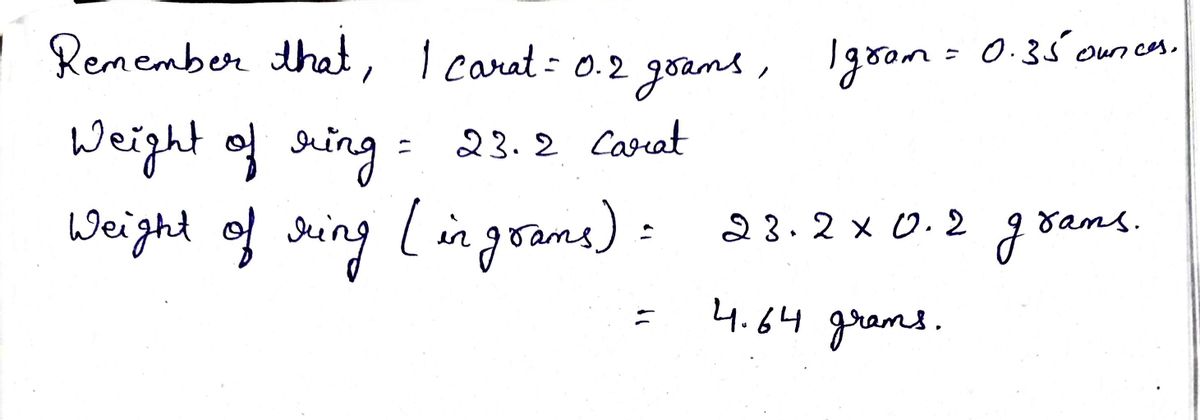 Remember that, 1 carat = 0.2 grams, 1 gram = 0.35 ounces.
Weight of ring = 23.2 Carat
Weight of ring (in grams) = 23.2 x 0.2 grams.
= 4.64 grams.